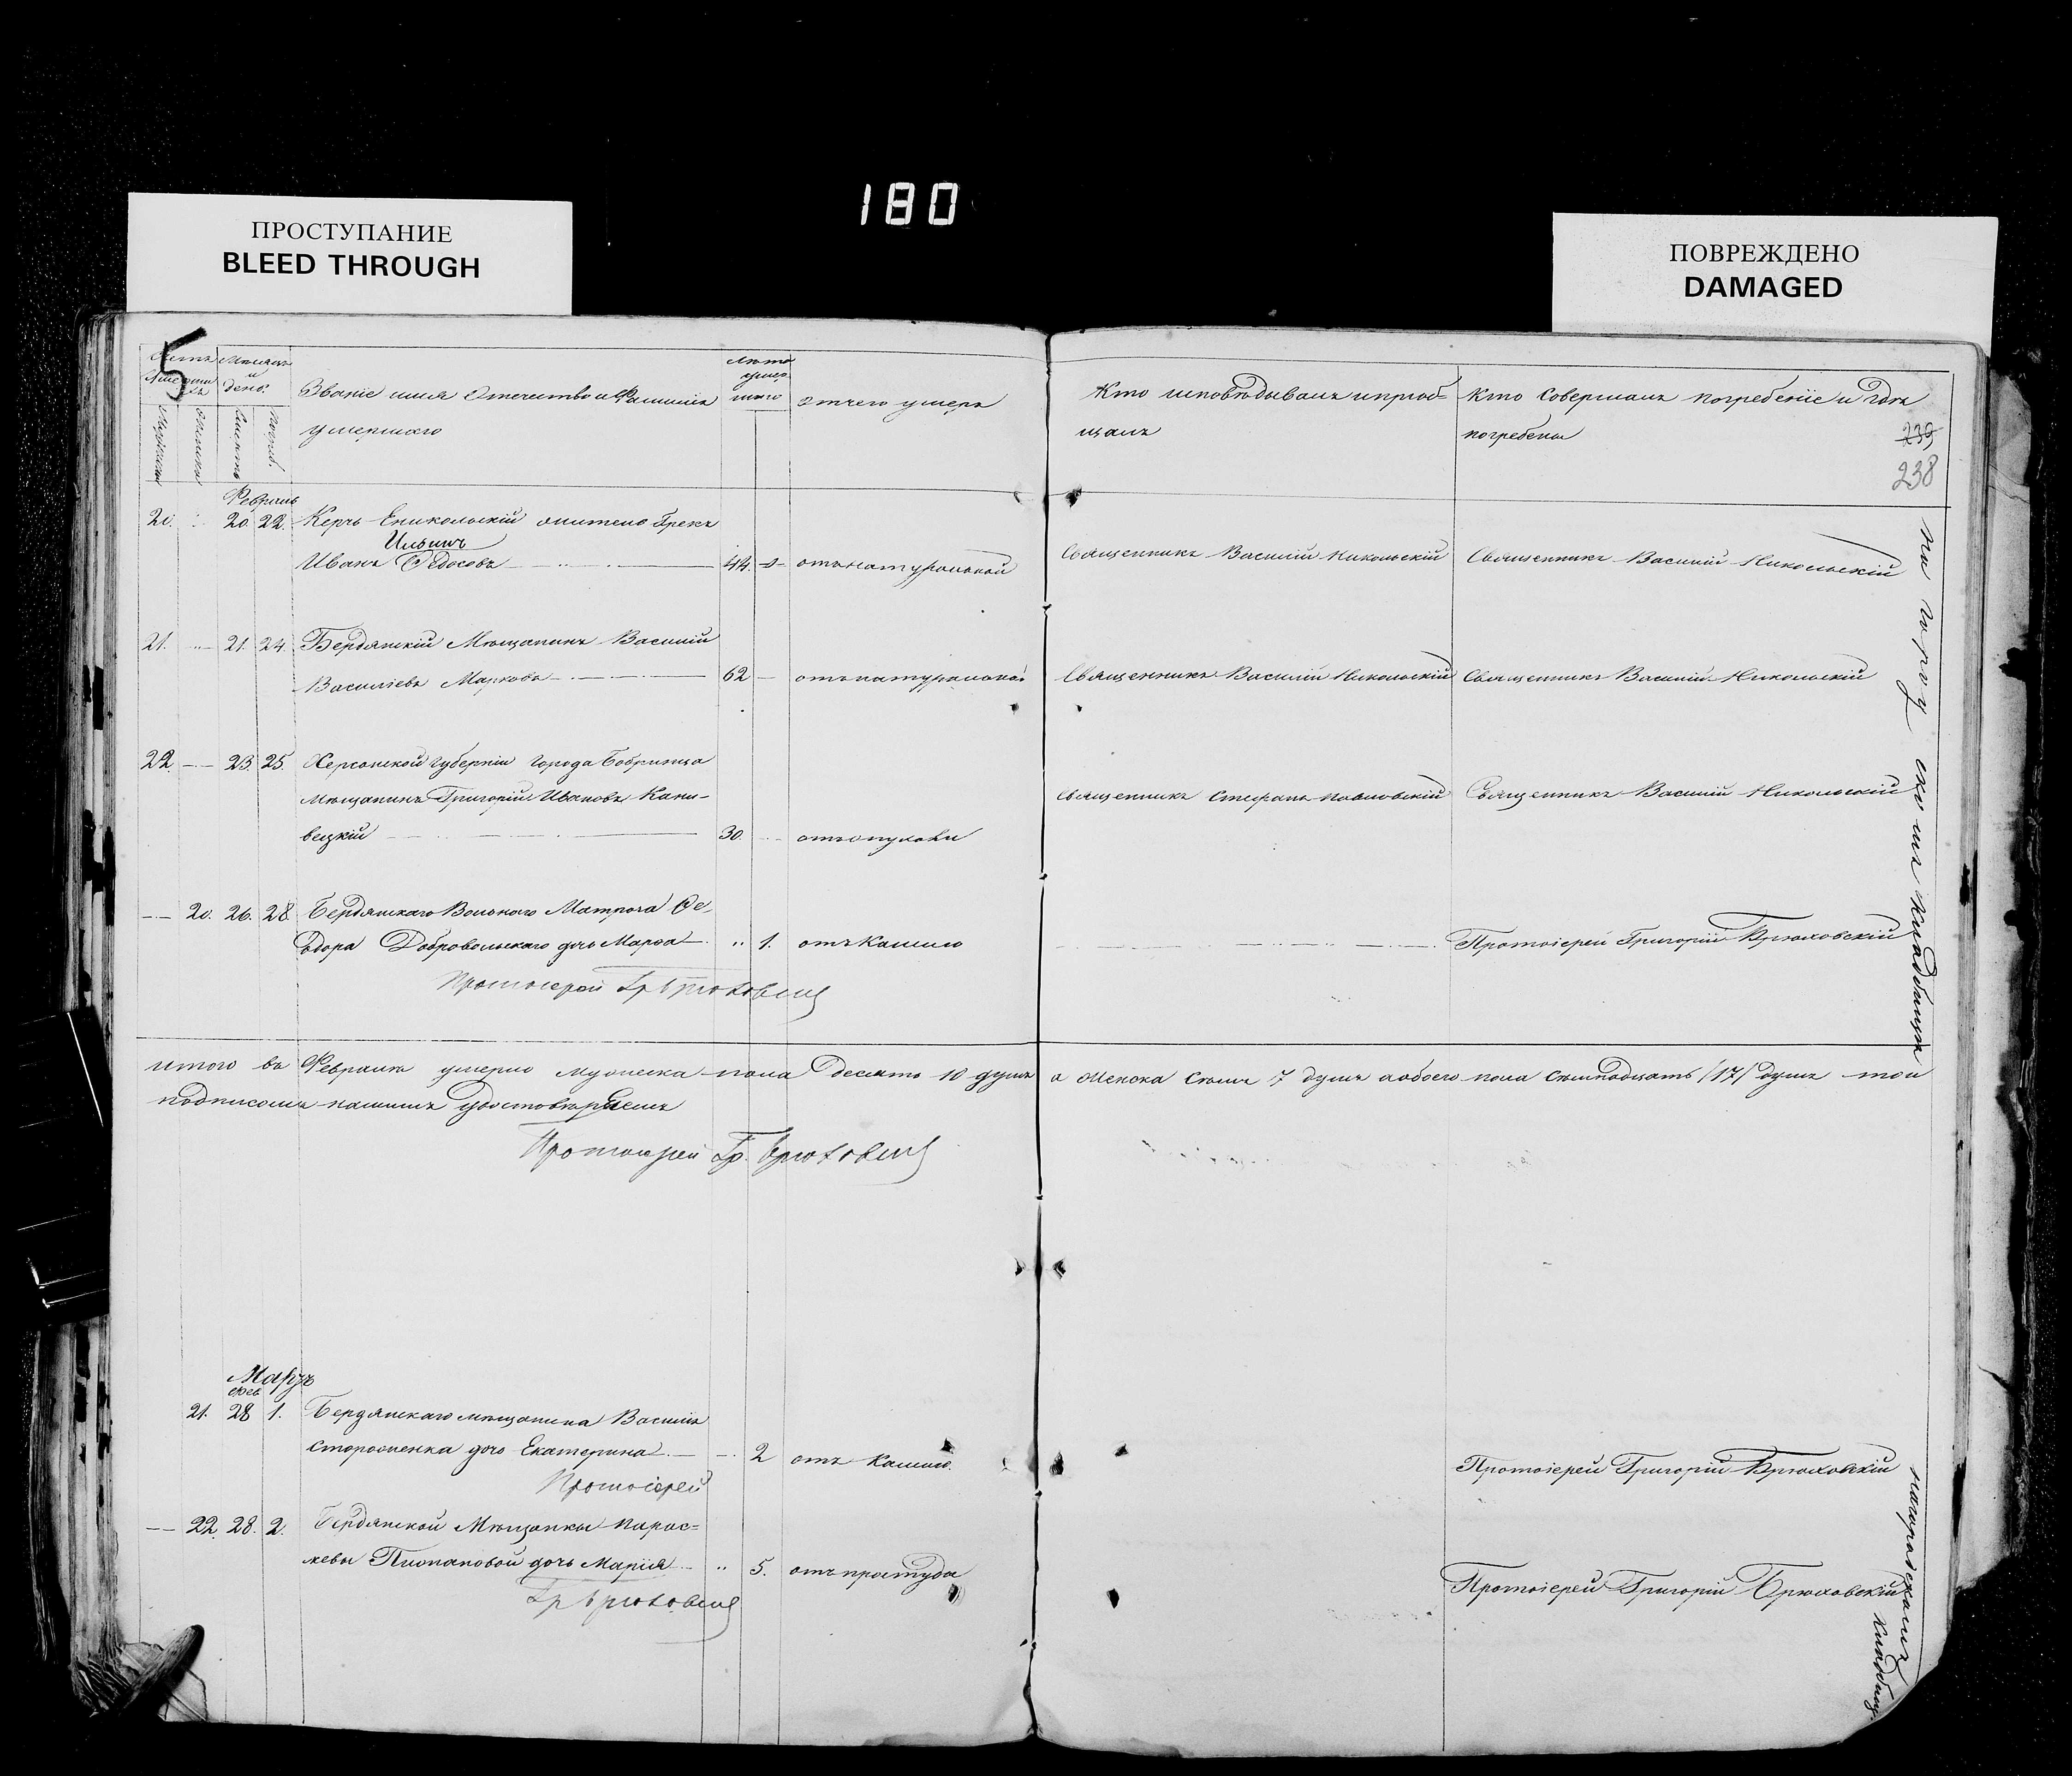 180
ПРОСТУПАНИЕ
BLEED THROUGH
ПОВРЕЖДЕНО
DAMAGED
5
Мѣсяцъ и день.
Званіе имя Отчество и Фамилія умершаго
Лета умершаго
отчего умеръ
Кто исповѣдывалъ и приоб=
щалъ
Кто Совершалъ погребеніе и Гдѣ
погребены
239
238
Февраль
20. 20. 22. Керчь Еникольскій Грекъ
Ильинъ
Иванъ Ѳедосовъ 44. отъ натуральной Священникъ Василій Никольскій Священникъ Василій Никольскій
21. 21. 24. Бердянскій Мѣщанинъ Василій
Василіевъ Марковъ 62 отъ натуральной Священникъ Василій Никольскій Священникъ Василій Никольскій
22. 23. 25. Херсонской Губерніи города Бобринца
мѣщанинъ Григорій Ивановъ Кани-
вецкій 30. отъ опухоли Священникъ Стефанъ Павловскій Священникъ Василій Никольскій
20. 26. 28. Бердянскаго Вольнаго Матроса Ѳе-
одора Добровольскаго дочь Марѳа 1. отъ Кашлю Протоіерей Григорій Брюховскій
Протоіерей Гр Брюховскій
на городскомъ кладбищѣ
итого въ Февралѣ умерло мужеска пола Десять 10 душъ а Женска Семь 7 душъ а обоего пола Семнадцать /17/ душъ
подписомъ нашимъ удостовѣряемъ
Протоіерей Гр. Брюховскій
Мартъ
фев
21. 28 1. Бердянскаго мѣщанина Василія
Стороженка дочь Екатерина 2 отъ Кашлю. Протоіерей Григорій Брюховскій
Протоіерей
22. 28. 2. Бердянской Мѣщанки Парас=
кевы дочь Марія 5. отъ простуды Протоіерей Григорій Брюховскій
Гр Брюховскій
на городскомъ кладбищ